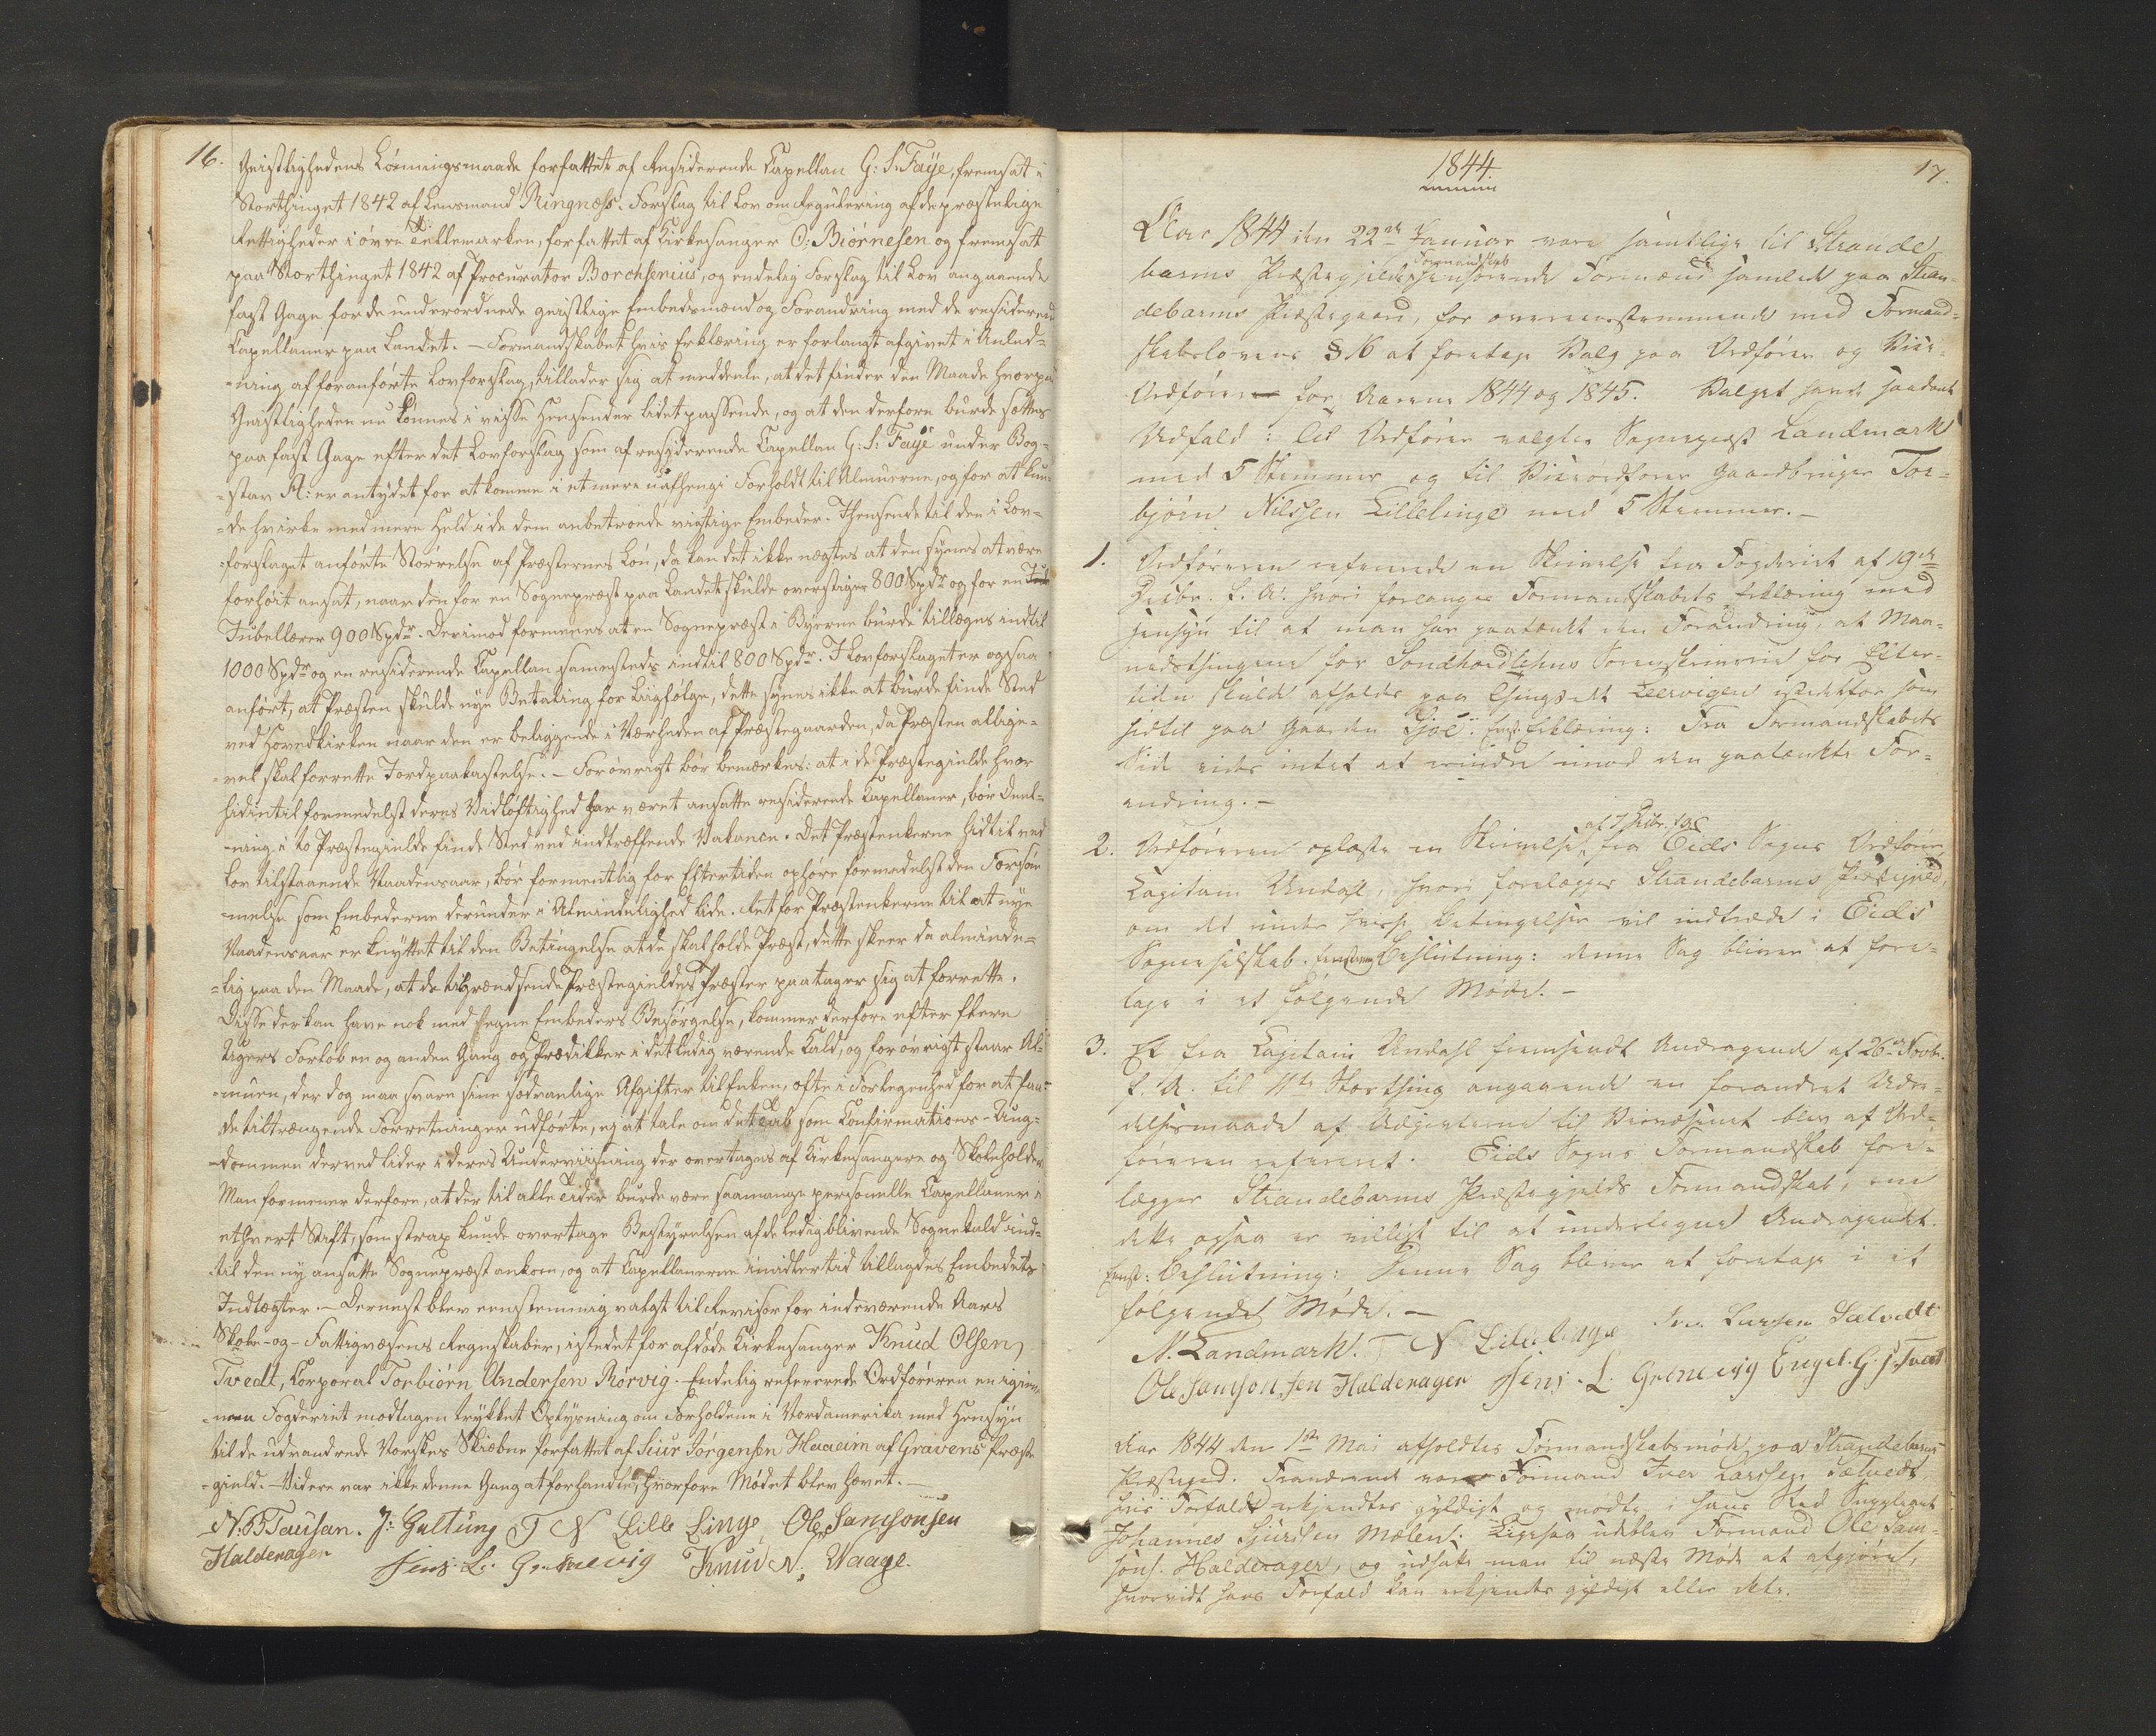 16.
Geistlighedens Lønningsmaade forfattet af Residerende Capellan G: S: Faÿe, fremsat i
Storthinget 1842 af Lensmand Ringnæss. Forslag til Lov om Regulering af de præstelige
Rettigheder i øvre Tellemarken, forfattet af Kirkesanger O: Biørnesen og fremsat
paa Storthinget 1842 af Procurator Borchsenius, og endelig Forslag til Lov angaaende
fast Gage for de underordnede geistlige Embedsmænd og Forandring med de residerende
Capellaner paa Landet. – Formandskabet hvis Erklæring er forlangt afgivet i Anled-
-ning af foranførte Lovforslag, tillader sig at meddele, at det finder den Maade hvorpaa
Geistligheden nu lønnes i visse Henseender lidet passende, og at den derfore burde sættes
paa fast Gage efter det Lovforslag som af residerende Capellan G: S: Faÿe under Bog-
-stav A: er antydet for at komme i et mere uafhengi Forholdt til Almuerne, og for at kun-
-de hvirke med mere Held i de dem anbetroede vigtige Embeder. Ihenseende til den i Lov-
-forslaget anførte Størrelse af Præsternes Løn, da kan det ikke nægtes at den synes at være
forhøit ansat, naar den for en Sognepræst paa Landet skulde overstiger 800 Spdr og for en
Jubellærer 900 Spdr. Derimod formenes at en Sognepræst i Byerne burde tillægges indtil
1000 Spdr og en residerende Capellan sammesteds indtil 800 Spdr. I Lovforslaget er ogsaa
anført, at Præsten skulde nye Betaling for Liigfølge, dette synes ikke at burde finde Sted
ved Hovedkirken naar den er beliggende i Nærheden af Præstegaarden, da Præsten allige-
-vel skal forrette Jordpaakastelse. – Forøvrigt bør bemærkes: at i de Præstegielde hvor
hidintil formedelst deres Vidløftighed har været ansatte residerende Capellaner, bør Deel-
-ning i to Præstegielde finde Sted ved indtræffende Vakance. Det Præstenkerne hidtil ved
Lov tilstaaende Naadensaar, bør formentlig for Eftertiden ophøre formedelst den Forsøm-
-melse som Embederne derunder i Almindelighed lide. Ret for Præstenkerne til at nye
Naadensaar er knyttet til den Betingelse at de skal holde Præst, dette skeer da alminde-
-lig paa den Maade, at de tilgrændsende Præstegieldes Præster paatager sig at forrette.
Disse der kan have nok med hegne Embeders Besørgelse, kommer derfore efter flere
Ugers Forløb en og anden Gang og Prædikker i det ledig værende Kald, og forøvrigt staar Al-
-muen, der dog maa svare sine sædvanlige Afgifter til Enken, ofte i Forlegenhed for at faa
de tiltrængende Forretninger udførte, ej at tale om det Tab som Confirmations-Ung-
-dommen derved lider i deres Underviisning der overtages af Kirkesangere og Skoleholder
Man formener derfore, at der til alle Tider burde være saamange personelle Capellaner i
ethvert Stift, som strax kunde overtage Bestyrelsen af de ledigblivende Sognekald ind-
til den ny ansatte Sognepræst ankom, og at Capellanerne imidlertid tillagdes Embedets
Indtægter. – Dernest blev eenstemmig valgt til Revisor for indeværende Aars
Skole- og Fattigvæsens Regnskaber, istedet for afdøde Kirkesanger Knud Olsen
Tvedt, Korporal Torbiørn Andersen Rørvig. Endelig refererede Ordføreren en igien-
-nem Fogderiet modtagen trykket Oplysning om Forholdene i Nordamerika med Hensyn
til de udvandrede Norskes Skiæbne forfattet af Siur Jørgensen Haaeim af Gravens Præste
-gield. Videre var ikke denne Gang at forhandle, hvorfore Mødet blev hævet.
N. B Tausan. J: Galtung T N Lille Linge Ole Samsonsen
Haldenagen Jens L: Gravdevig Knud N: Waage.
17.
1844.
Aar 1844 den 22de Januar vare samtlige til Strande
barms Præstegjelds Formandskab henhørende Formænd samlede paa Stran-
debarms Præstegaard, for overeensstemmende med Formand-
skabslovens § 16 at foretage Valg paa Ordfører og Vice-
Ordfører for Aarene 1844 og 1845. Valget havde saadant
Udfald: til Ordfører valgtes Sognepræst Landmark
med 5 Stemmer og til Viceordfører Gaardbruger Tor-
bjørn Nilssen Lillelinge med 5 Stemmer. –
1. Ordføreren refererede en Skrivelse fra Fogderiet af 19de
Decbr. f. A. hvori forlanges Formandskabets Erklæring med
Hensyn til at man har paatænkt den Forandring, at Maa-
nedsthingene for Søndhordlehns Sorenskriverie for Efter-
tiden skulde afholdes paa Thingstedt Leervigen istedetfor som
hidtil paa Gaarden Tjøe. Erklæring: Fra Formandskabets
Side vides intet at erindre imod den paatænkte For-
andring. –
2. Ordføreren oplæste en Skrivelse af 7 Decbr. f. A. fra Eids Sogns Ordfører
Capitain Undahl, hvori forelægges Strandebarms Præstegjeld
om det under hvisse Betingelser vil indtræde i Eids
Sogneselskab. Beslutning: denne Sag bliver at fore-
tage i et følgende Møde. –
3. Et fra Capitain Undahl fremsendt Andragende af 26de Novbr.
f. A. til 11te Storthing angaaende en forandret Udre-
delsesmaade af Udgivterne til Veivæsenet blev af Ord-
føreren refereret. Eids Sogns Formandskab fore-
lægger Strandebarms Præstegjelds Formandskab, om
dette ogsaa er villigt til at undertegne Andragendet.
Beslutning: Denne Sag bliver at foretage i et
følgende Møde. –
N. Landmark. T N Lillelinge Iver Larssen Sælvedt
Ole Samsonsen Haldenagen Jens L. Gravdevig Engel. G. J. Tvedt
Aar 1844 den 1ste Mai afholdtes Formandskabsmøde paa Strandebarms
Præstegaard. Fraværende var Formand Iver Larssen Sælvedt
hvis Forfald erkjendtes gyldigt og mødte i hans Sted Suppleant
Johannes Sjurssen Mælen. Ligesaa udeblev Formand Ole Sam-
sons. Haldenagen, og udsatte man til næste Møde at afgjøre,
hvorvidt hans Forfald kan erkjendes gyldigt eller ikke.